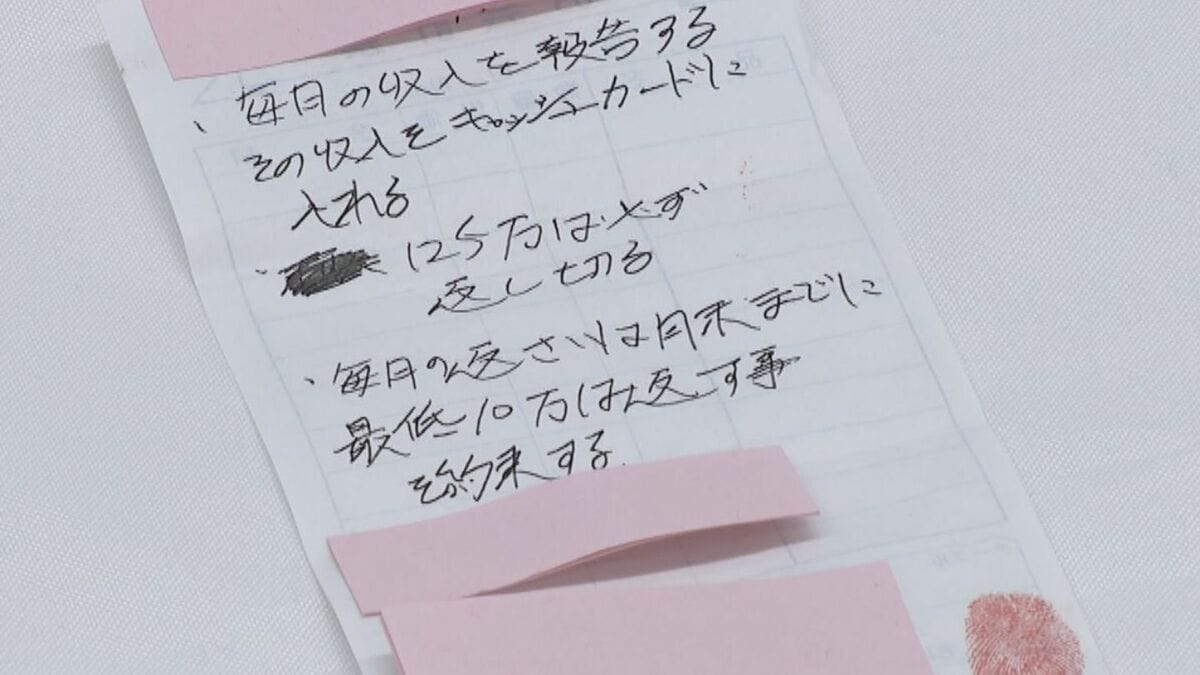 、毎月の収入を報告する
その収入をキャッシュカードに
入れる
、125万は必ず
返し切る
、毎月の返さいは月末までに
最低10万は返す事
を約束する